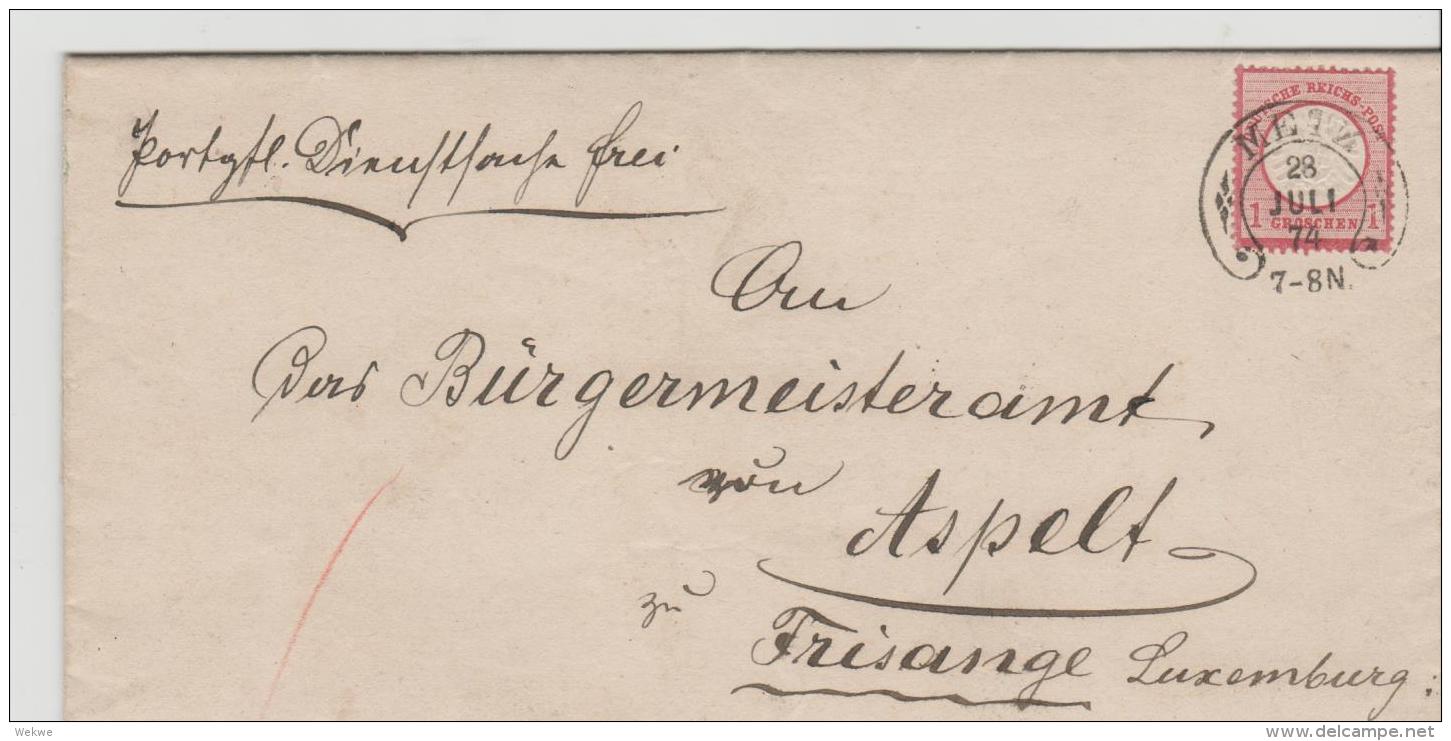 Portopfl. Dienstsache frei
DEUTSCHE REICHS-POST
METZ
28
JULI
74
1 GROSCHEN 1
7-8N.
An
Das Bürgermeisteramt
von
Aspelt
zu
Frisange Luxemburg.
Wekwe
© www.delcampe.net